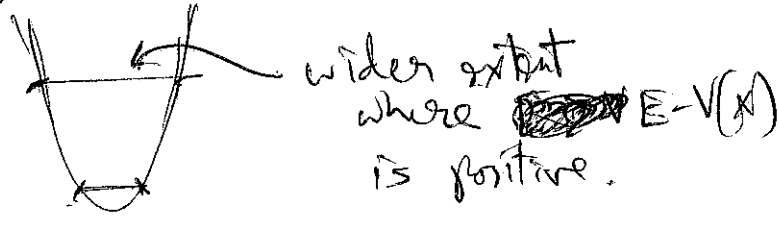 wider extent
where E-V(x)
is positive.